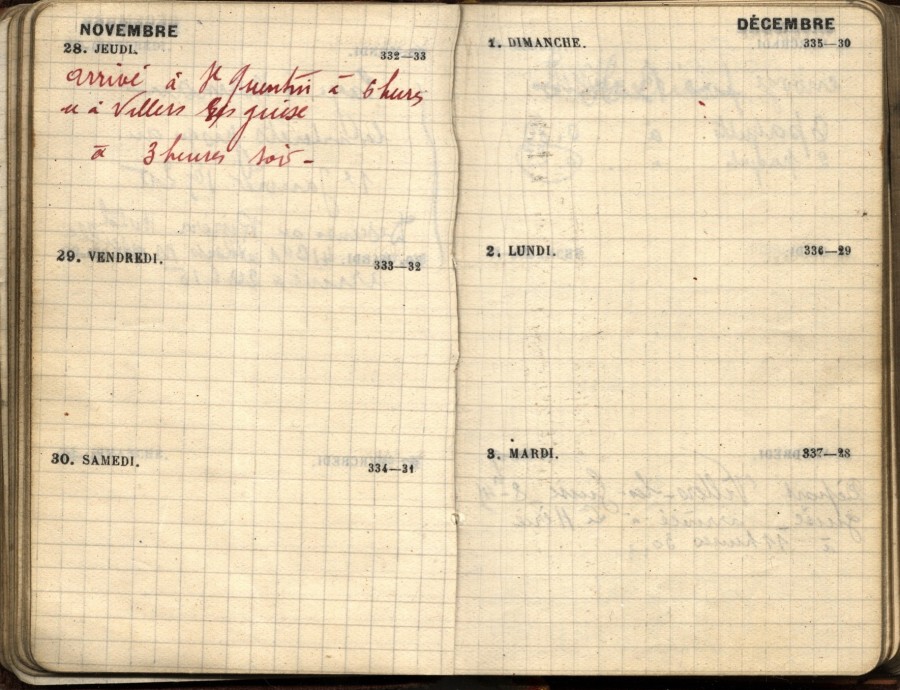 NOVEMBRE
28. JEUDI. 332—33
arrivé à St Quentin à 6 hures
à Villers les guise
à 3 heures soir -
29. VENDREDI. 333—32
30. SAMEDI. 334—31
DÉCEMBRE
1. DIMANCHE. 335—30
2. LUNDI. 336—29
3. MARDI. 337—28